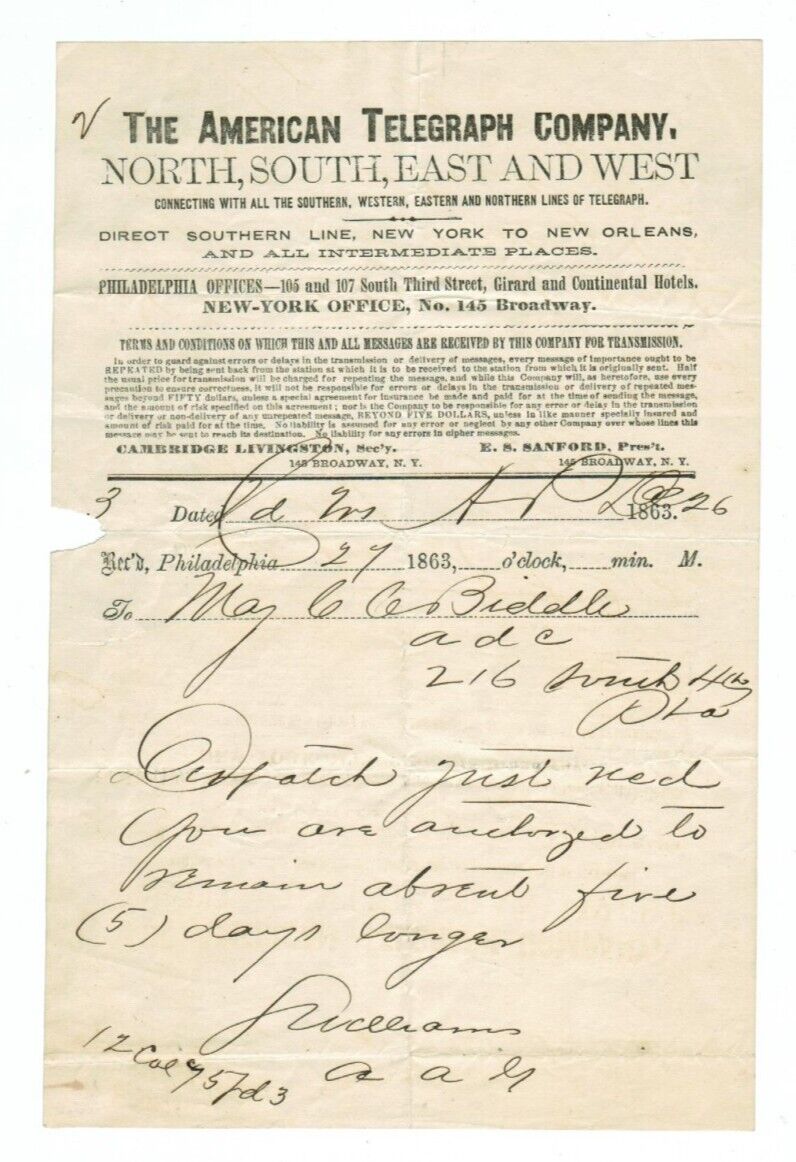 THE AMERICAN TELEGRAPH COMPANY,
NORTH, SOUTH, EAST AND WEST
CONNECTING WITH ALL THE SOUTHERN, WESTERN, EASTERN AND NORTHERN LINES OF TELEGRAPH.
DIRECT SOUTHERN LINE, NEW YORK TO NEW ORLEANS,
AND ALL INTERMEDIATE PLACES.
PHILADELPHIA OFFICES—105 and 107 South Third Street, Girard and Continental Hotels.
NEW-YORK OFFICE, No. 145 Broadway.
TERMS AND CONDITIONS ON WHICH THIS AND ALL MESSAGES ARE RECEIVED BY THIS COMPANY FOR TRANSMISSION.
In order to guard against errors or delays in the transmission or delivery of messages, every message of importance ought to be
REPEATED by being sent back from the station at which it is to be received to the station from which it is originally sent. Half
the usual price for transmission will be charged for repeating the message, and while this Company will, as heretofore, use every
precaution to ensure correctness, it will not be responsible for errors or delays in the transmission or delivery of repeated mes-
sages beyond FIFTY dollars, unless a special agreement for insurance be made and paid for at the time of sending the message,
and the amount of risk specified on this agreement; nor is the Company to be responsible for any error or delay in the transmission
or delivery or non-delivery of any unrepeated message, BEYOND FIVE DOLLARS, unless in like manner specially insured and
amount of risk paid for at the time. No liability is assumed for any error or neglect by any other Company over whose lines this
message may be sent to reach its destination. No liability for any errors in cipher messages.
CAMBRIDGE LIVINGSTON, Sec'y. E. S. SANFORD, Pres't.
145 BROADWAY, N. Y. 145 BROADWAY, N. Y.
3 Dated Hd Qrs A P Dec 1863. 26
Rec'd, Philadelphia 27 1863, o'clock, min. M.
To Maj C C Biddle
a d c
216 South 4th
Pha
Despatch just recd
You are authorzed to
remain absent five
(5) days longer
S Williams
a a G
12 Col 75 pd 3